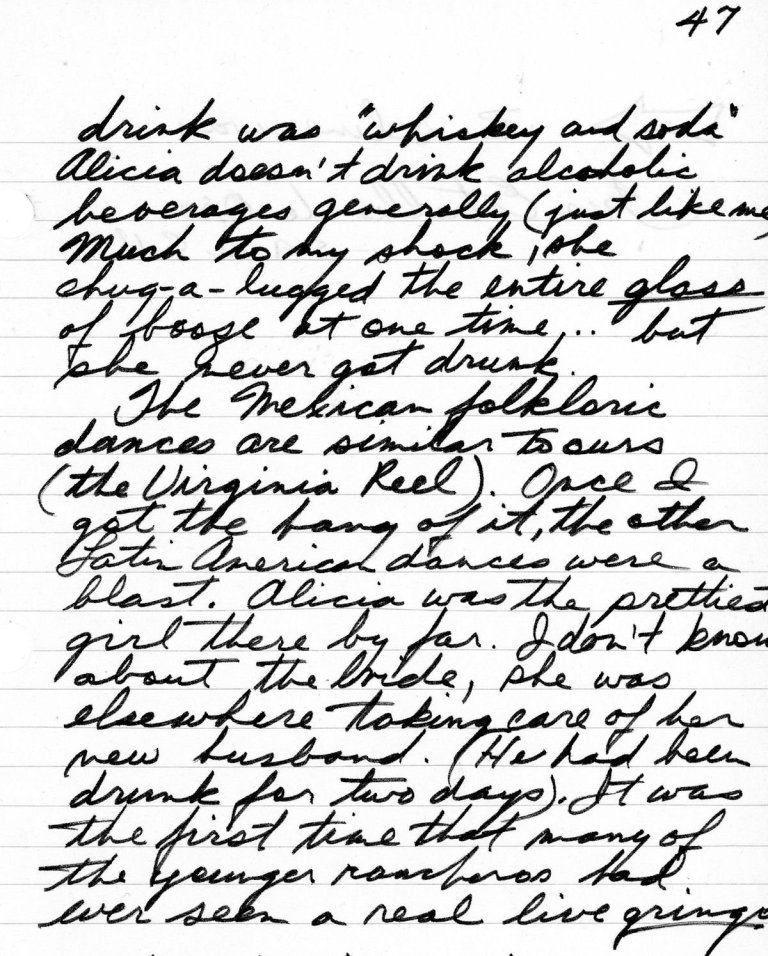 47
drink was "whiskey and soda"
Alicia doesn't drink alcoholic
beverages generally (just like me)
Much to my shock, she
chug-a-lugged the entire glass
of booze at one time... but
she never got drunk.
The Mexican folkloric
dances are similar to ours
(the Virginia Reel). Once I
got the hang of it, the other
Latin American dances were a
blast. Alicia was the prettiest
girl there by far. I don't know
about the bride, she was
elsewhere taking care of her
new husband. (He had been
drunk for two days). It was
the first time that many of
the younger rancheros had
ever seen a real live gringo